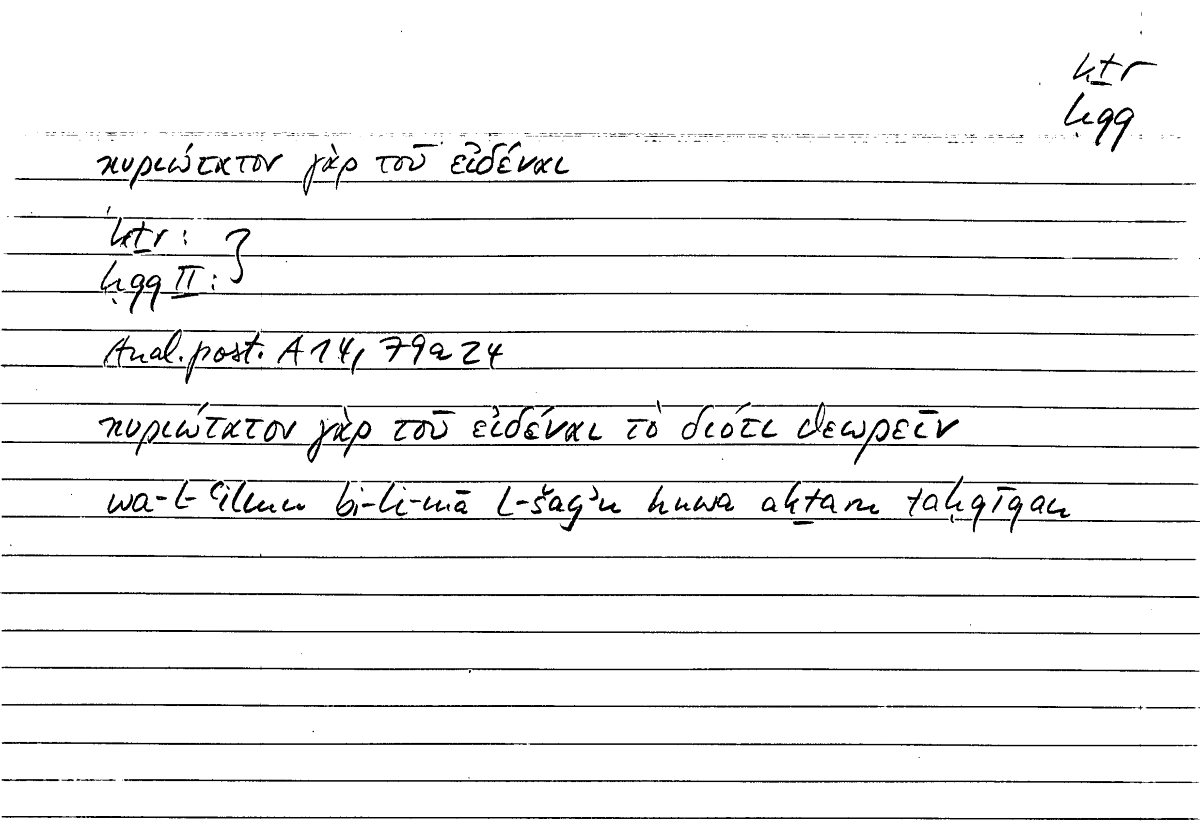 kṯr
ḥqq
κυριώτατον γὰρ τοῦ εἰδέναι
kṯr :
ḥqq II : }
Anal. post. A 14, 79a24
κυριώτατον γὰρ τοῦ εἰδέναι τὸ διότι θεωρεῖν
wa-l-ʿilmu bi-li-mā l-šayʾu huwa akṯaru taḥqīqan